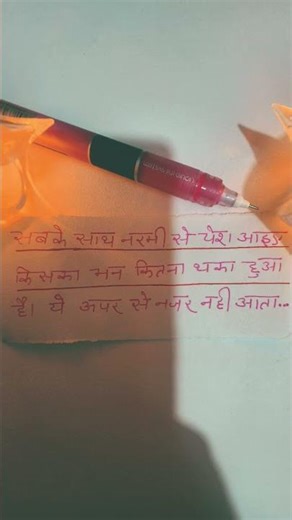 सबके साथ नरमी से पेश आइए
किसका मन कितना थका हुआ
है। ये अपर से नजर नही आता..